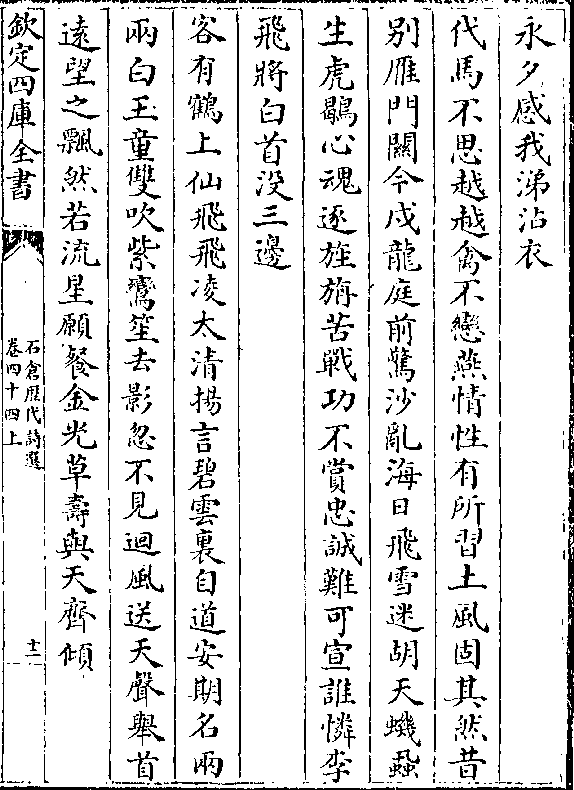 永夕感我涕沾衣
代馬不思越越禽不戀燕情性有所習土風固其然昔
别雁門關今戍龍庭前驚沙亂海日飛雪迷胡天蟣蝨
生虎鶡心魂逐旌旃苦戰功不賞忠誠難可宣誰憐李
飛將白首没三邊
客有鶴上仙飛飛凌太清揚言碧雲裏自道安期名兩
兩白玉童雙吹紫鸞笙去影忽不見迴風送天聲舉首
遠望之飄然若流星願餐金光草壽與天齊傾
欽定四庫全書
石倉歴代詩選
卷四十四上
十二